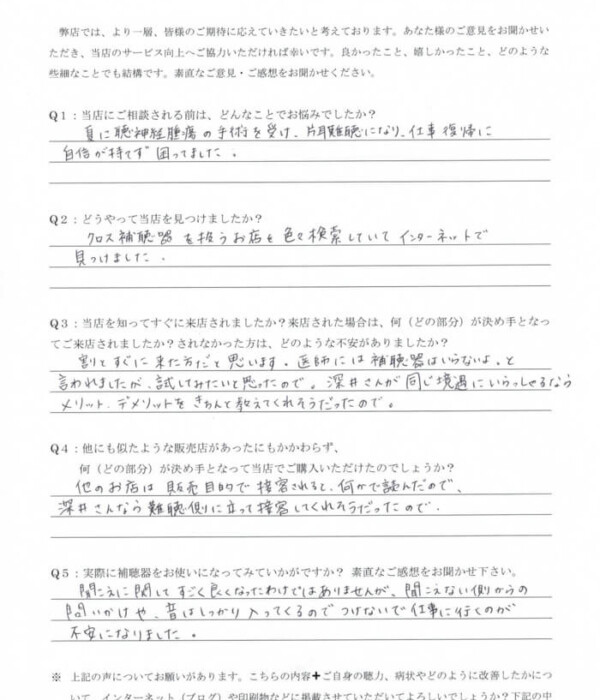 弊店では、より一層、皆様のご期待に応えていきたいと考えております。あなた様のご意見をお聞かせい
ただき、当店のサービス向上へご協力いただければ幸いです。良かったこと、嬉しかったこと、どのような
些細なことでも結構です。素直なご意見・ご感想をお聞かせください。
Q1：当店にご相談される前は、どんなことでお悩みでしたか？
夏に聴神経腫瘍の手術を受け、片耳難聴になり、仕事復帰に
自信が持てず困ってました。
Q2：どうやって当店を見つけましたか？
クロス補聴器を扱うお店を色々検索していてインターネットで
見つけました。
Q3：当店を知ってすぐに来店されましたか？来店された場合は、何（どの部分）が決め手となっ
てご来店されましたか？されなかった方は、どのような不安がありましたか？
割とすぐに来た方だと思います。医師には補聴器はいらないよ、と
言われましたが、試してみたいと思ったので。深井さんが同じ境遇にいらっしゃるなら
メリット、デメリットをきちんと教えてくれそうだったので。
Q4：他にも似たような販売店があったにもかかわらず、
何（どの部分）が決め手となって当店でご購入いただけたのでしょうか？
他のお店は販売目的で接客されると、何かで読んだので、
深井さんなら難聴側に立って接客してくれそうだったので．
Q5：実際に補聴器をお使いになってみていかがですか？ 素直なご感想をお聞かせ下さい。
聞こえに関してすごく良くなったわけではありませんが、聞こえない側からの
問いかけや、音はしっかり入ってくるのでつけないで仕事に行くのが
不安になりました。
※ 上記の声についてお願いがあります。こちらの内容＋ご自身の聴力、病状やどのように改善したかにつ
いて、インターネット（ブログ）や印刷物などに掲載させていただいてよろしいでしょうか？下記の中